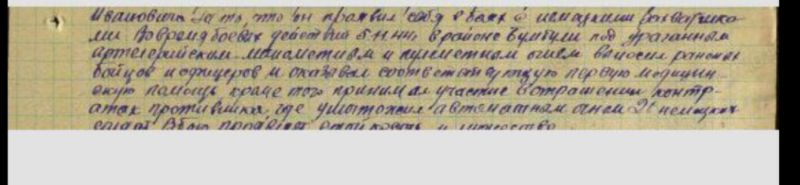 Ивановича За то, что он проявил себя в боях с немецкими захватчика-
ми. Во время боевых действий 5.11.44г в районе под ураганным
артелерийским минометным и пулеметным огнем выносил раненых
бойцов и офицеров и оказывал соответствующую первую медицин-
скую помощь кроме того принимал участие в отражении контр-
атак противника, где уничтожил автоматным огнем немецких
солдат. В бою проявляет стойкость и мужество.